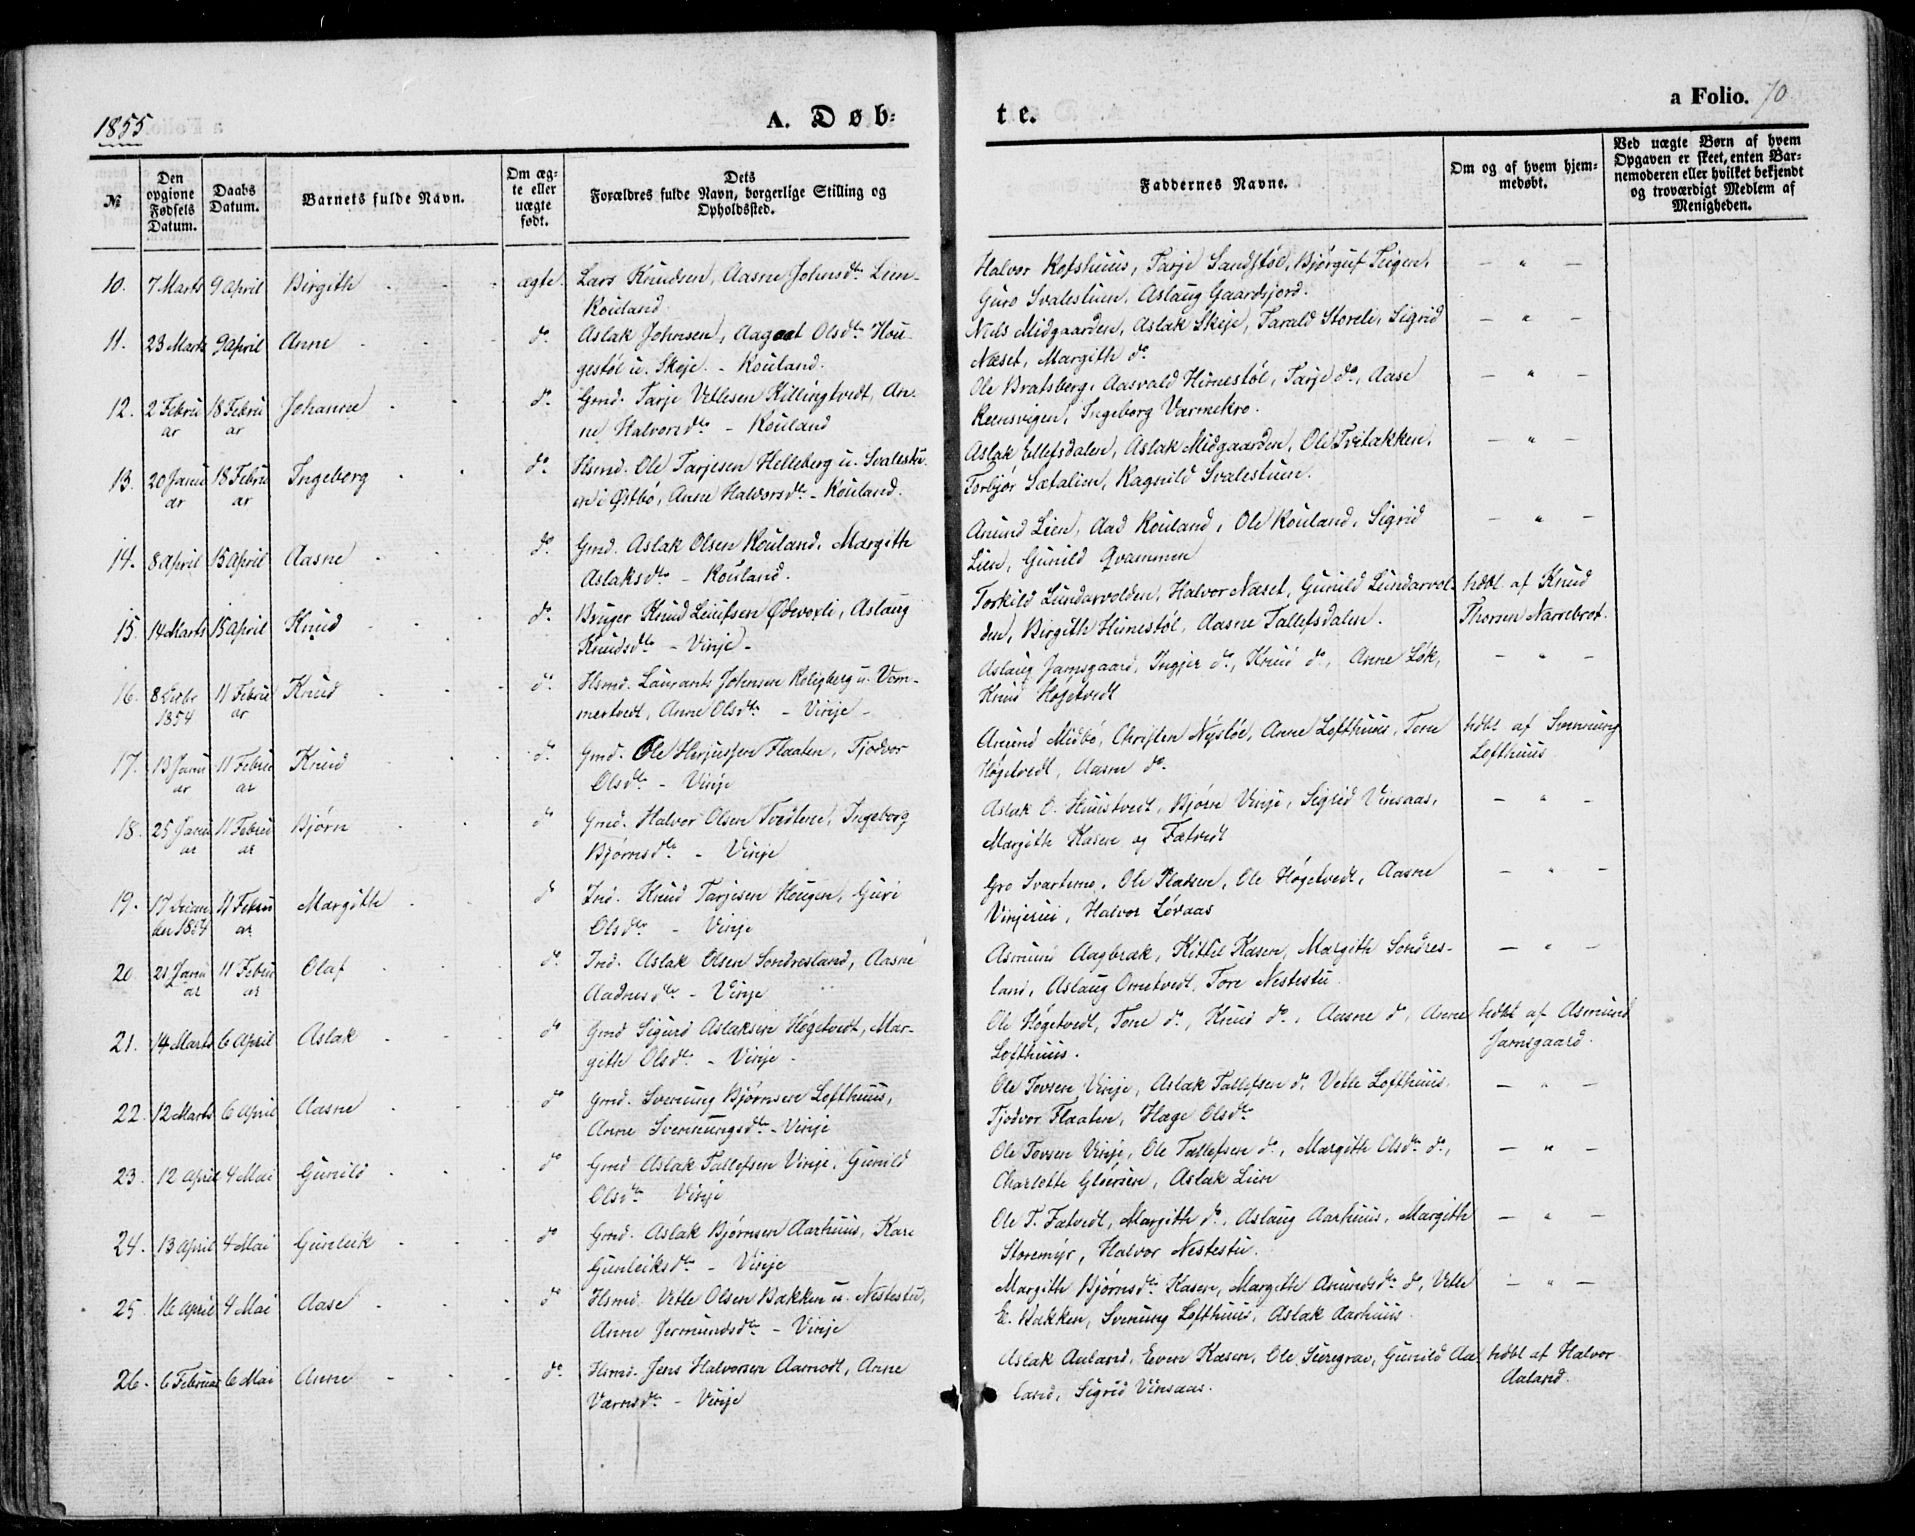 1855
A. Døb-
te.
a Folio. 70
№
Den opgivne Fødsels Datum.
Daabs Datum.
Barnets fulde Navn.
Om ægte eller uægte født.
Dets Forældres fulde Navn, borgerlige Stilling og Opholdssted.
Faddernes Navne.
Om og af hvem hjemmedøbt.
Ved uægte Børn af hvem Opgaven er skeet, enten Barnemoderen eller hvilket bekjendt og troværdigt Medlem af Menigheden.
10. 7 Marts 9 April Birgith ægte. Lars Knudsen, Aasne Johnsdtr Lien - Rouland
Halvor Kosthuus, Tarje Sandstøl, Bjørguf Teigen,
Guro Svalestuen, Aslaug Gaardsjord.
11. 23 Marts 9 April Anne do Aslak Johnsen, Aagaat Olsdtr Hou-
gestøl u. Skeje. - Rouland.
Niels Midgaarden, Aslak Skeje, Tarald Storeli, Sigrid
Næset, Margith do
12. 2 Februar 18 Februar Johanne do Gmd. Tarje Vetlesen Killingtvedt, An-
ne Halvorsdtr - Rouland
Ole Bratsberg, Aasvald Himestøl, Tarje do, Aase
Reensvigen, Ingeborg Varmekro.
13. 20 Januar 18 Februar Ingeborg do Hsmd. Ole Tarjesen Helleberg u. Svalestu-
en i Østbø, Anne Halvorsdtr - Rouland.
Aslak Ellefsdalen, Aslak Midgaarden, Ole Tveitakken,
Torbjør Sætalien, Ragnild Svalestuen.
14. 8 April 15 April Aasne do Gmd. Aslak Olsen Rouland, Margith
Aslaksdtr - Rouland.
Anund Lien, Aad Rouland, Ole Rouland, Sigrid
Lien, Gunild Qvammen
15. 14 Marts 15 April Knud do Bruger Knud Leiufsen Ødvoxli, Aslaug
Knudsdtr - Vinje -
Torkild Lundarvolden, Halvor Næset, Gunild Lundarvol-
den, Birgith Himestøl, Aasne Tallefsdalen.
hdbt af Knud
Thorsen Narrebrot.
16. 8 Decbr 1854 11 Februar Knud do Hsmd. Laurants Johnsen Religberg u. Vem-
mertvedt, Anne Olsdtr - Vinje -
Aslaug Jamsgaard, Ingjer do, Knud do, Anne Løk,
Knud Høgetvedt
17. 13 Januar 11 Februar Knud do Gmd. Ole Herjusfsen Flaaten, Tjodvor
Olsdtr - Vinje
Anund Midbø, Christen Nystøl, Anne Lofthuus, Tone
Høgetvedt, Aasne do.
hdbt af Svenning
Lofthuus
18. 25 Januar 11 Februar Bjørn do Gmd. Halvor Olsen Tvedtene, Ingeborg
Bjørnsdtr - Vinje
Aslak O. Huustvedt, Bjørn Vinje, Sigrid Vinsaas,
Margith Kasen og Fætvedt
19. 17 Decem der 1854 11 Februar Margith do Ind. Knud Tarjesen Hougen, Guri
Olsdtr - Vinje
Gro Svartemo, Ole Pladsen, Ole Høgetvedt, Aasne
Vinjerui, Halvor Løvaas
20 21 Januar 11 Februar Olaf do Ind. Aslak Olsen Sondresland, Aasne
Aadnesdtr - Vinje
Asmund Aagbrak, Kittil Kasen, Margith Sondres-
land, Aslaug Ometvedt, Tore Nestestu
21. 14 Marts 6 April Aslak do Gmd Sigurd Aslaksen Høgetvedt, Mar-
gith Olsdtr - Vinje -
Ole Høgetvedt, Tone do, Knud do, Aasne do, Anne
Lofthuus.
hdbt af Asmund
Jamsgaard.
22. 12 Marts 6 April Aasne do Gmd. Svenung Bjørnsen Lofthuus,
Anne Svenningsdtr - Vinje
Ole Tovsen Vinje, Aslak Tallefsen do, Vetle Lofthuus,
Tjodvor Flaaten, Hæge Olsdtr
23. 12 April 4 Mai Gunild do Gmd Aslak Tallefsen Vinje, Gunild
Olsdtr Vinje
Ole Tovsen Vinje, Ole Tallefsen do, Margith Olsdtr do,
Charlotte Gloersen, Aslak Lien
24. 13 April 4 Mai Gunleik do Gmd. Aslak Bjørnsen Aarhuus, Kari
Gunleiksdtr - Vinje
Ole T. Fætvedt, Margith do, Aslaug Aarhuus, Margith
Storemyr, Halvor Nestestu.
25. 16 April 4 Mai Aase do Hsmd. Vetle Olsen Bakken u. Nestestu,
Anne Jermundsdtr - Vinje
Margith Bjørnsdtr Kasen, Margith Anundsdtr do, Vetle
E. Bakken, Svenung Lofthuus, Aslak Aarhuus.
26. 6 Februar 6 Mai Anne do Hsmd. Jens Halvorsen Aamodt, Anne
Værnsdtr - Vinje
Aslak Aaland, Even Kasen, Ole Suregrav, Gunild Aa-
land, Sigrid Vinsaas.
hdbt af Halvor
Aaland.